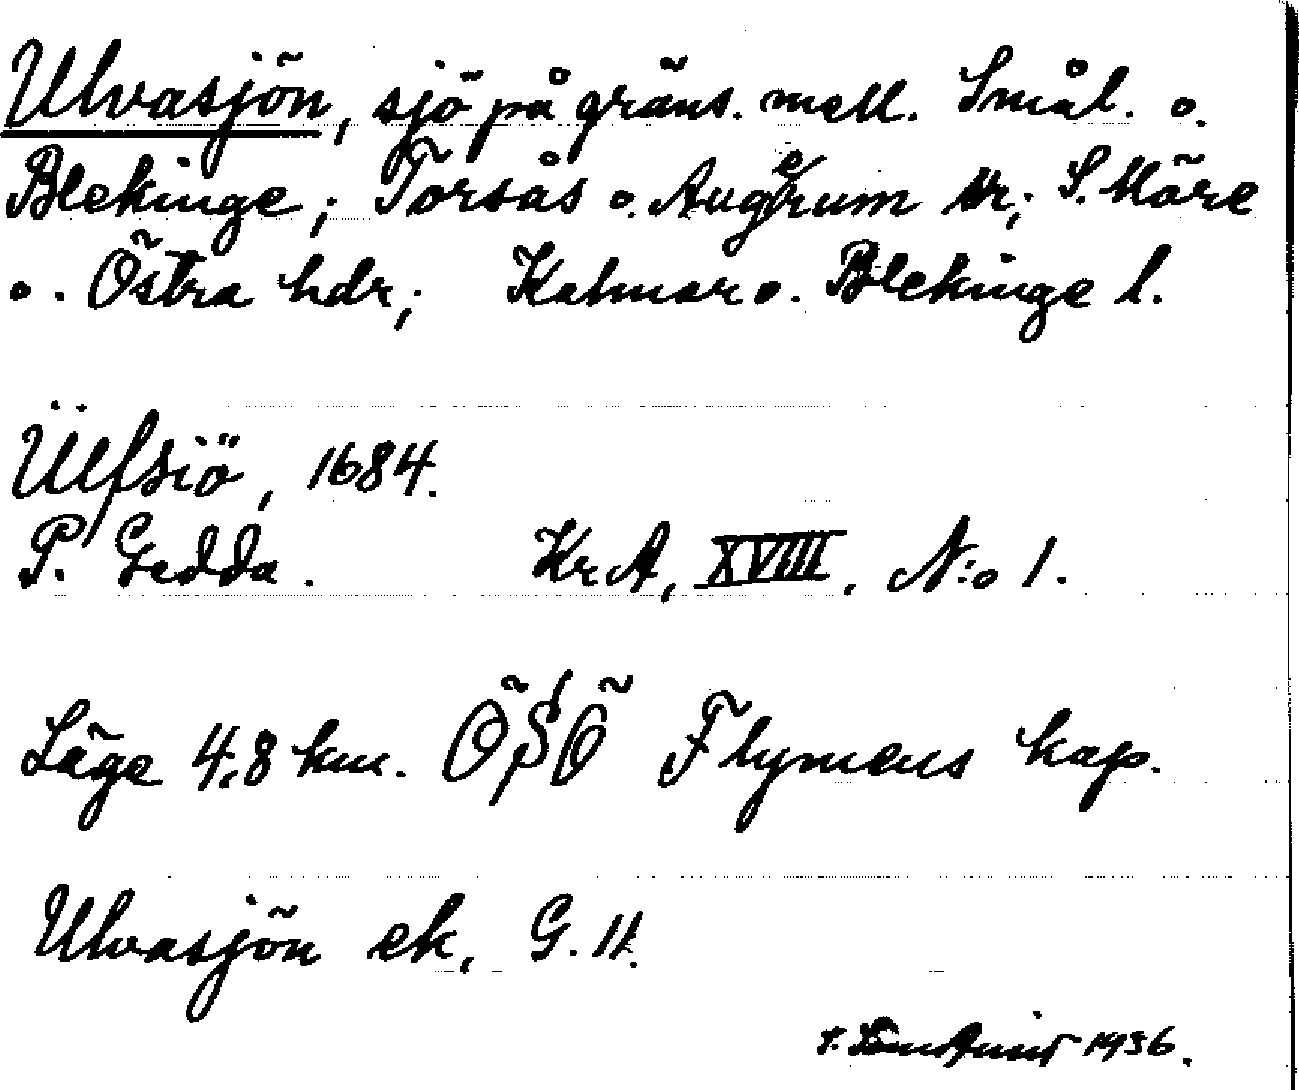 Ulvasjön, sjö på gräns. mell. Smål. o.
Blekinge; Torsås o. Augerum sr; S. Möre
o. Östra hdr; Kalmar o. Blekinge l.
Ülfsiö, 1684.
P. Gedda. KrA, XVIII, N:o 1.
Läge 4,8 km. ÖSÖ Flymens kap.
Ulvasjön ek, G. 11.
1936.